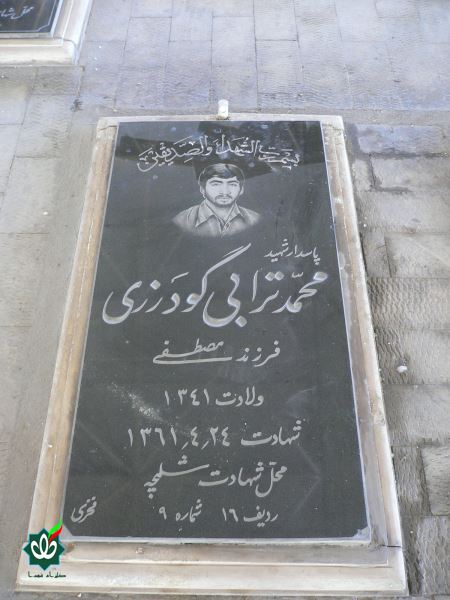 بسم رب الشهداء والصدیقین
پاسدار شهید
محمّد ترابی گودرزی
فرزند مصطفی
ولادت ۱۳٤۱
شهادت ۲٤٫٤٫۱۳٦۱
محلّ شهادت شلمچه
ردیف ۱٦ شماره ۹
فخری